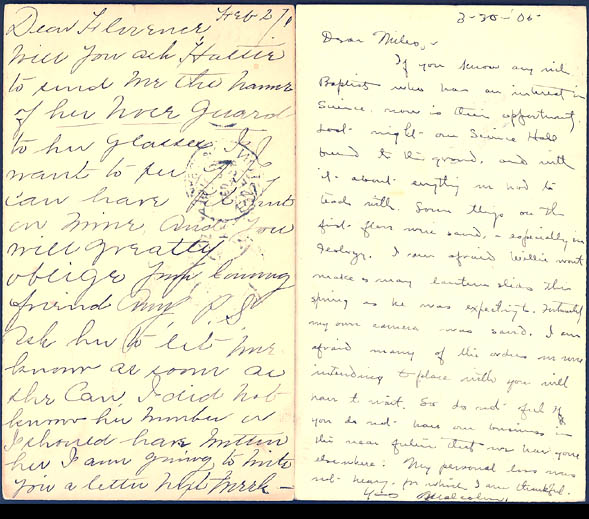 Feb 27/
Dear Florence,
Will you ask Hattie
to send me the name
of her Nose Guard
to her glasses I
want to see if I
can have it put
on mine. And you
will greatly
oblige your loving
friend Amy P.S.
Ask her to let me
know as soon as
she can, I did not
know her number or
I should have written
her I am going to write
you a letter next week -
3-20-'05
Dear Miles, -
If you know any rich
Baptists who has an interest in
Science now is their opportunity.
Last night our Science Hall
burned to the ground, and with
it about everything we had to
teach with. Some things on the
first floor were saved, - especially in
Geology. I am afraid Willis won't
make as many lantern slides this
spring as he was expecting to.
my own camera was saved. I am
afraid many of the orders we were
intending to place with you will
have to wait. So do not feel if
you do not have our business in
the near future that we have gone
elsewhere. My personal loss was
not heavy, for which I am thankful.
Yours Malcolm